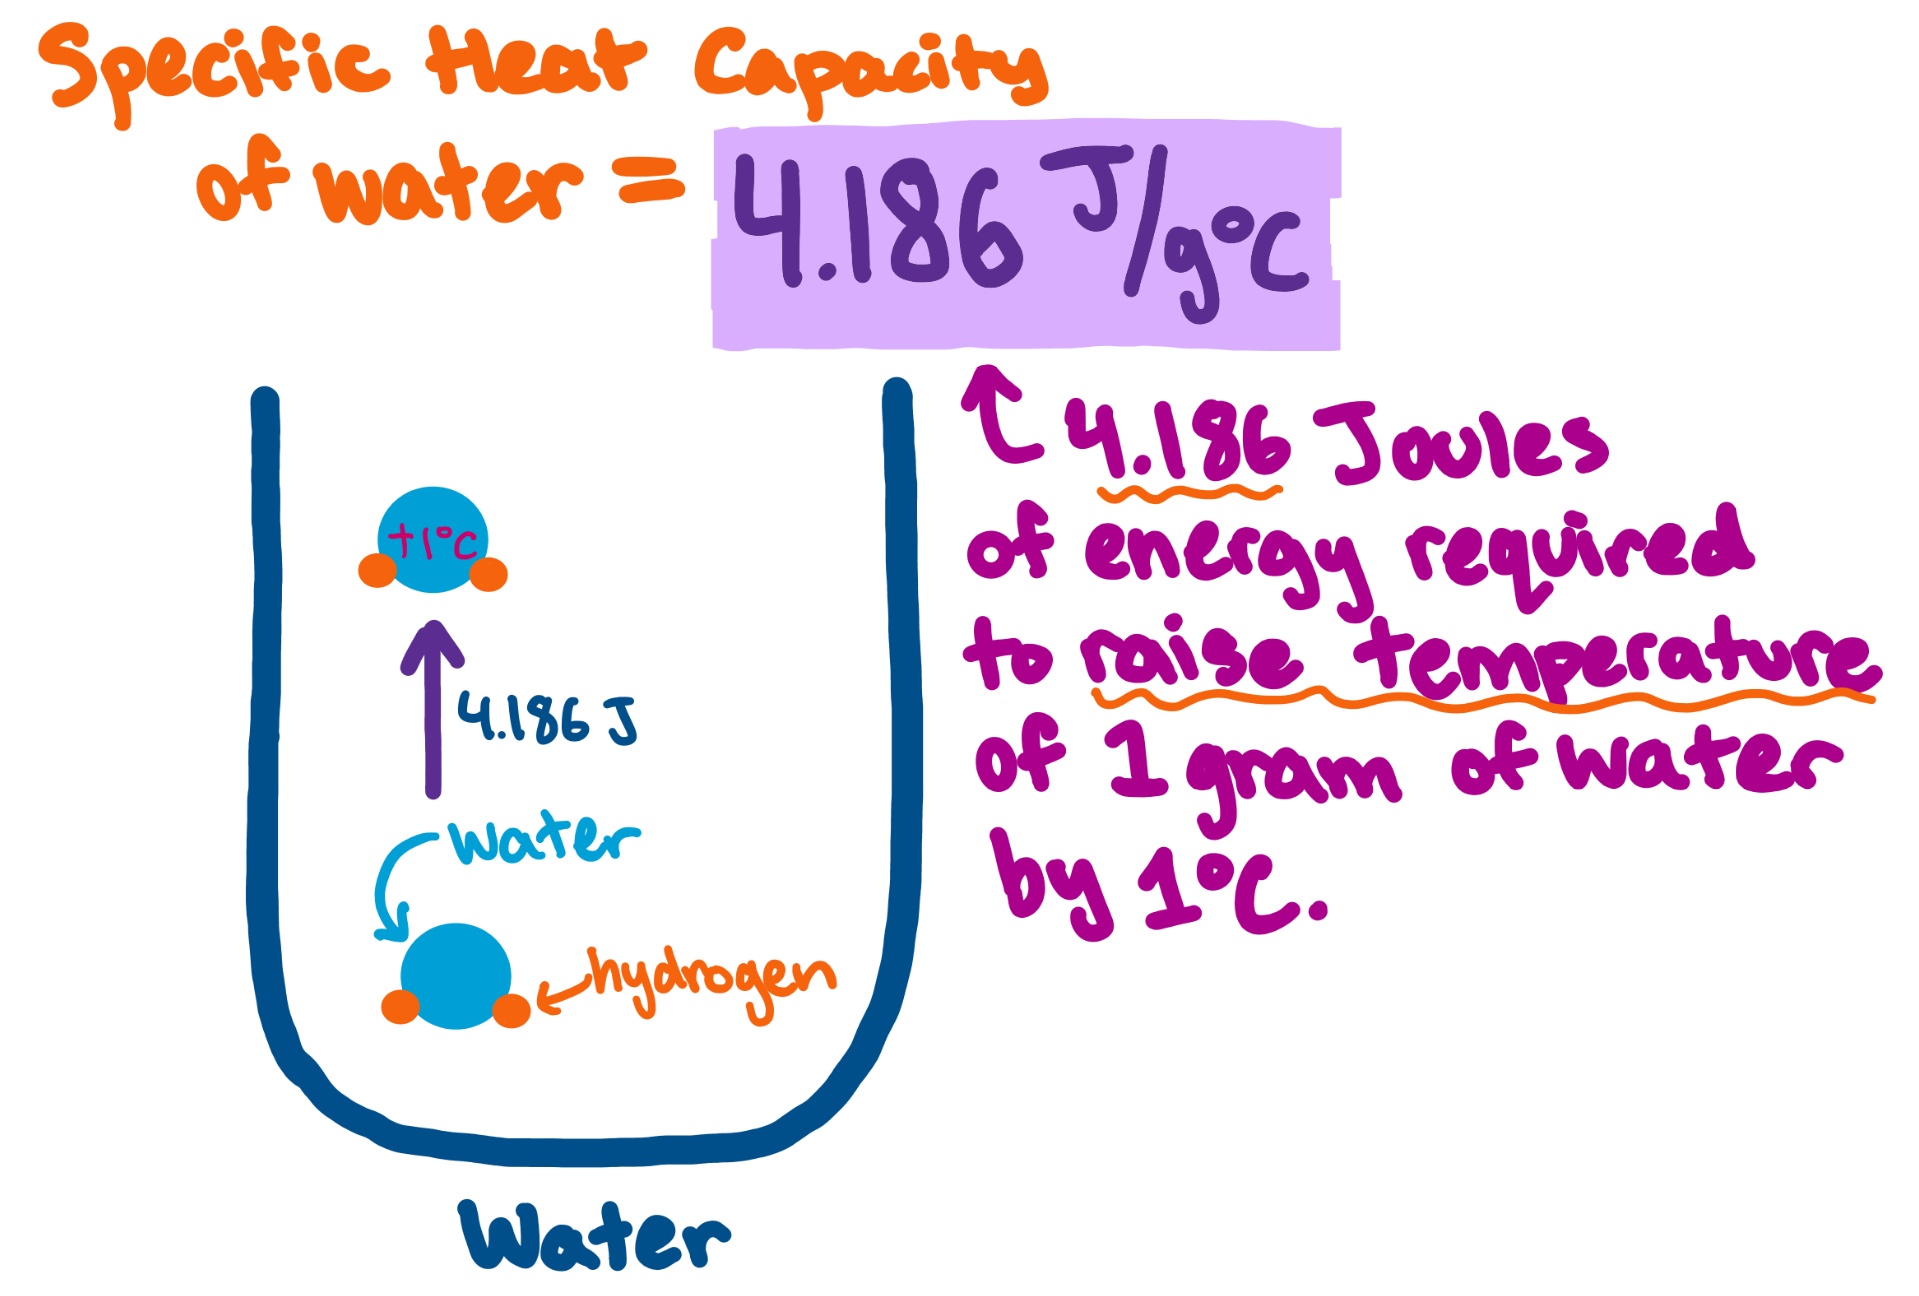 Specific Heat Capacity
of water = 4.186 J/g°C
4.186 Joules
of energy required
to raise temperature
of 1 gram of water
by 1°C.
+1°C
4.186 J
water
hydrogen
Water